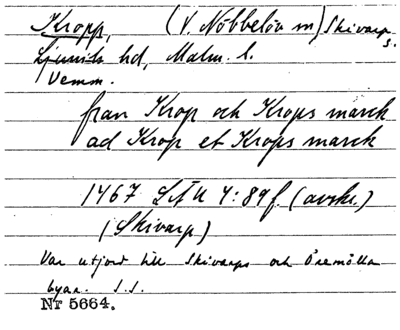 Kropp, (V. Nöbbelöv sn) Skivarps s.
Ljunits hd, Malm. l.
Vemm.
från Krop och Krops marck
ad Krop et Krops marck
1467 LÄU 4:89f. (avskr.)
(Skivarp)
Var utjord till Skivarps och Öremölla
byar. S.S.
Nr 5664.